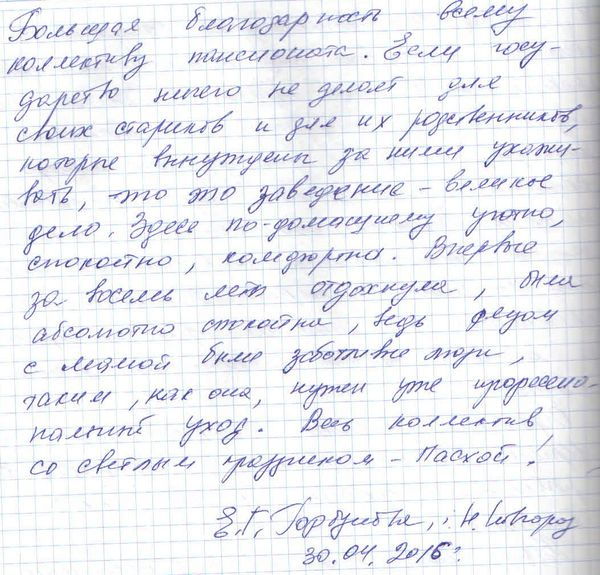 Большая благодарность всему
коллективу пансионата. Если госу-
дарство ничего не делает для
своих стариков и для их родственников,
которые вынуждены за ними ухажи-
вать, то это заведение - великое
дело. Здесь по-домашнему уютно,
спокойно, комфортно. Впервые
за восемь лет отдохнула, была
абсолютно спокойна, ведь рядом
с мамой были заботливые люди,
таким, как она, нужен уже професси­о-
нальный уход. Весь коллектив
со светлым праздником - Пасхой!
Е.Г. Горбунова, г. Н. Новгород
30.04.2016г.